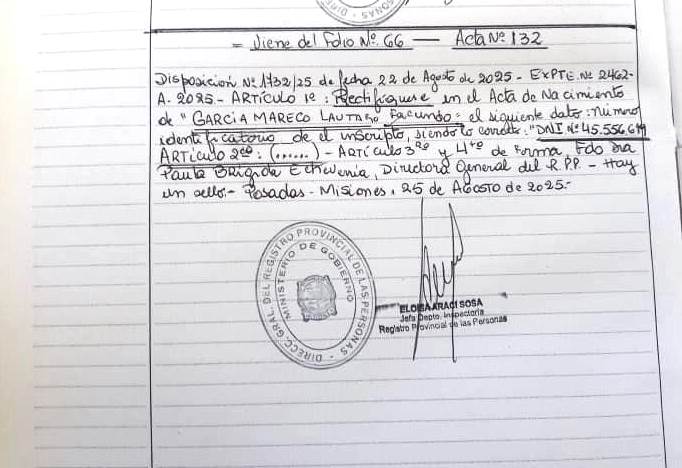 PERSONAS
= Viene del Folio Nº 66 — Acta Nº 132
Disposicion Nº 1732/25 de fecha 22 de Agosto de 2025 - EXPTE. Nº 2462-
A. 2025.- ARTÍCULO 1º: Rectifíquese en el Acta de Nacimiento
de "GARCIA MARECO LAUTARO Facundo" el siguiente dato: número
identificatorio de el inscripto, siendo lo correcto: "DNI Nº 45.556.611
ARTÍCULO 2do: (......) - ARTÍCULO 3ro y 4to de forma Fdo Dra
Paula Brigida Echeverria, Directora General del R.P.P. - Hay
un sello.- Posadas - Misiones, 25 de Agosto de 2025.-
DIRECC. GRAL. DEL REGISTRO PROVINCIAL DE LAS PERSONAS - 
MINISTERIO DE GOBIERNO
ELOISA ARACI SOSA
Jefa Depto. Inspectoria
Registro Provincial de las Personas